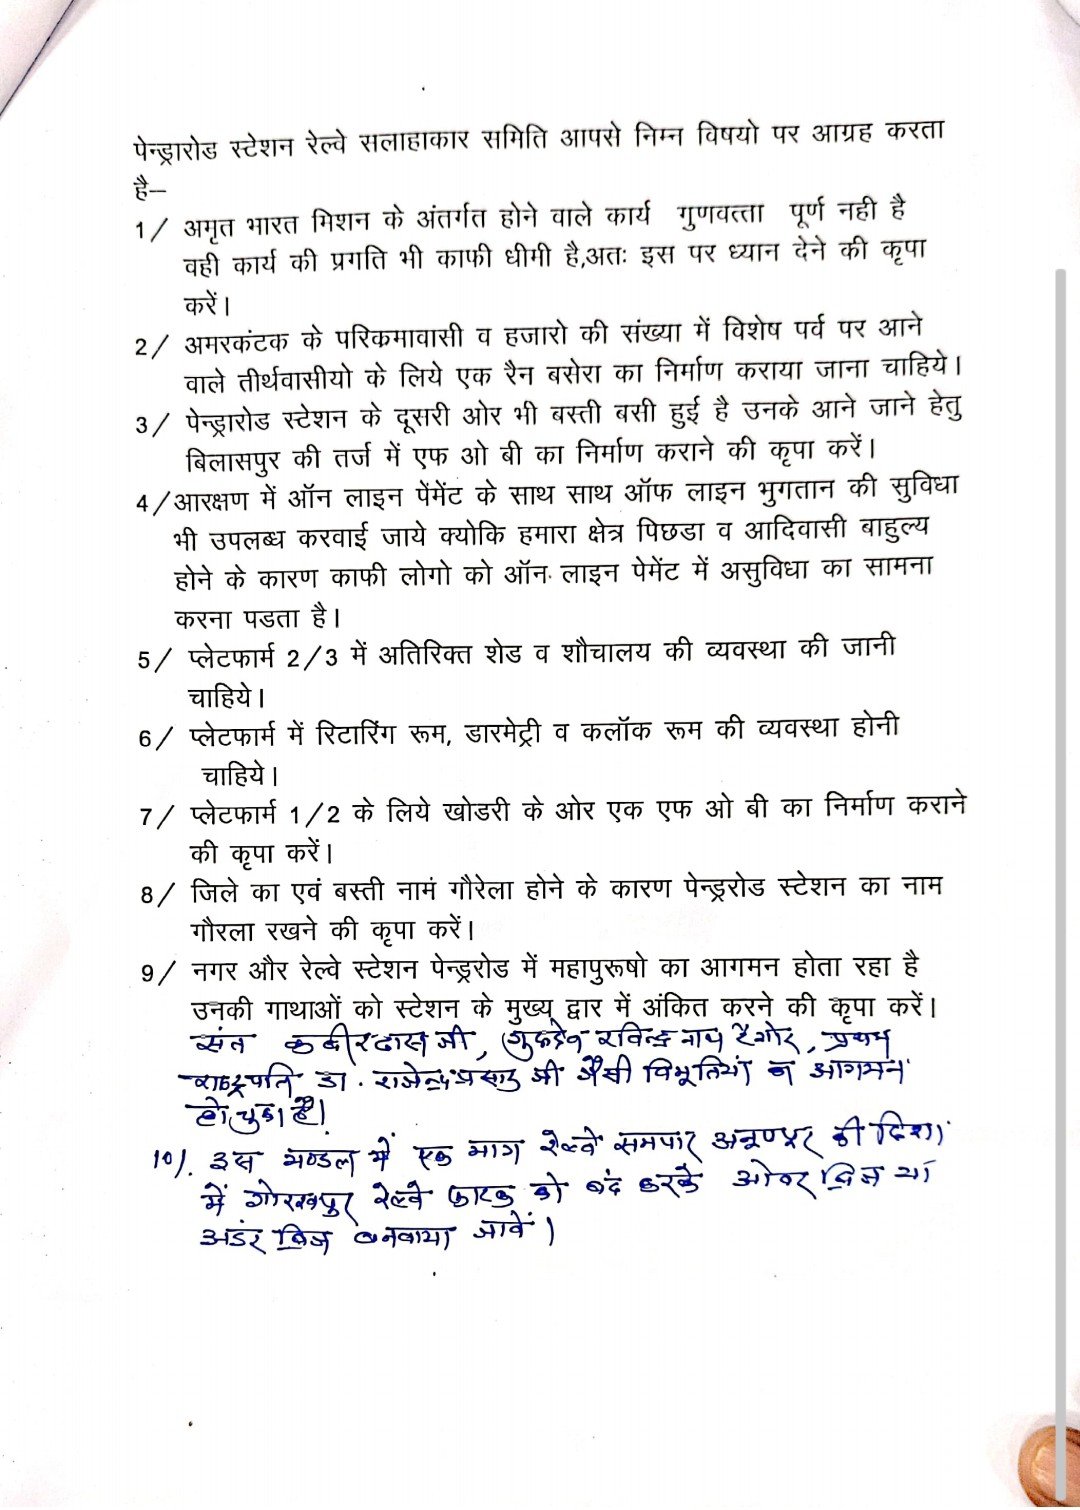 पेन्ड्रारोड स्टेशन रेल्वे सलाहाकार समिति आपसे निम्न विषयो पर आग्रह करता
है–
1/ अमृत भारत मिशन के अंतर्गत होने वाले कार्य गुणवत्ता पूर्ण नही है
वही कार्य की प्रगति भी काफी धीमी है,अतः इस पर ध्यान देने की कृपा
करें।
2/ अमरकंटक के परिकमावासी व हजारो की संख्या में विशेष पर्व पर आने
वाले तीर्थवासीयो के लिये एक रैन बसेरा का निर्माण कराया जाना चाहिये।
3/ पेन्ड्रारोड स्टेशन के दूसरी ओर भी बस्ती बसी हुई है उनके आने जाने हेतु
बिलासपुर की तर्ज में एफ ओ बी का निर्माण कराने की कृपा करें।
4/आरक्षण में ऑन लाइन पेंमेंट के साथ साथ ऑफ लाइन भुगतान की सुविधा
भी उपलब्ध करवाई जाये क्योकि हमारा क्षेत्र पिछडा व आदिवासी बाहुल्य
होने के कारण काफी लोगो को ऑन लाइन पेमेंट में असुविधा का सामना
करना पडता है।
5/ प्लेटफार्म 2/3 में अतिरिक्त शेड व शौचालय की व्यवस्था की जानी
चाहिये।
6/ प्लेटफार्म में रिटारिंग रूम, डारमेट्री व कलॉक रूम की व्यवस्था होनी
चाहिये।
7/ प्लेटफार्म 1/2 के लिये खोडरी के ओर एक एफ ओ बी का निर्माण कराने
की कृपा करें।
8/ जिले का एवं बस्ती नामं गौरेला होने के कारण पेन्ड्ररोड स्टेशन का नाम
गौरला रखने की कृपा करें।
9/ नगर और रेल्वे स्टेशन पेन्ड्ररोड में महापुरूषो का आगमन होता रहा है
उनकी गाथाओं को स्टेशन के मुख्य द्वार में अंकित करने की कृपा करें।
संत कबीरदास जी, गुरूदेव रविन्द्र नाथ टैगोर, प्रथम
राष्ट्रपति डा. राजेन्द्र प्रसाद जी जैसी विभूतियों का आगमन
हो चुका है।
10/. इस मण्डल में एक मात्र रेल्वे समपार अनूपपुर की दिशा
में गोरखपुर रेल्वे फाटक को बंद करके ओवर ब्रिज या
अडंर ब्रिज बनवाया जावें।